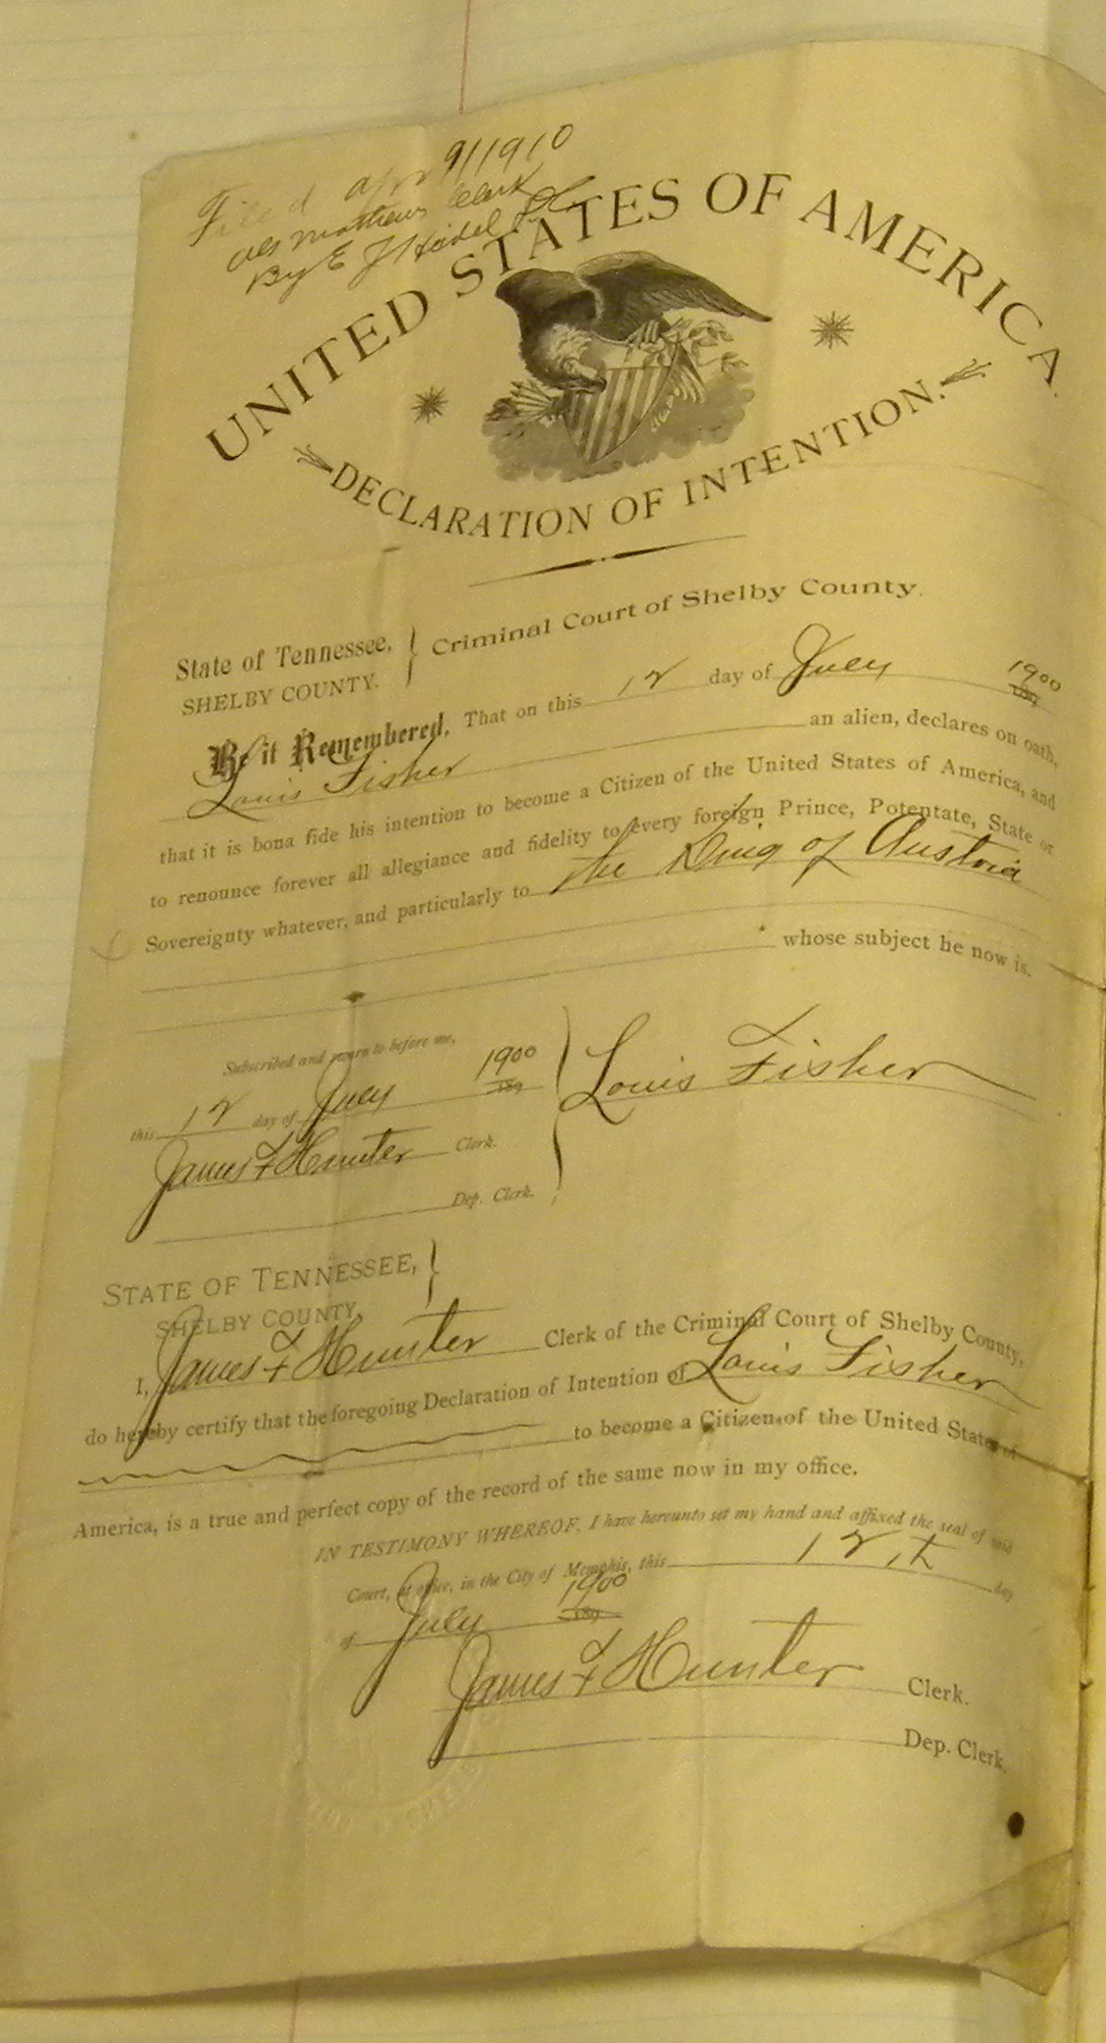 Filed Apr 9/1910
Mathews Clerk
By E J
UNITED STATES OF AMERICA.
DECLARATION OF INTENTION.
State of Tennessee, } Criminal Court of Shelby County.
SHELBY COUNTY.
Be it Remembered, That on this 12 day of July 1900 189
Louis Fisher an alien, declares on oath,
that it is bona fide his intention to become a Citizen of the United States of America, and
to renounce forever all allegiance and fidelity to every foreign Prince, Potentate, State or
Sovereignty whatever, and particularly to the King of Austria
whose subject he now is.
Subscribed and sworn to before me,
this 12 day of July 1900 189
Louis Fisher
James F Hunter Clerk.
Dep. Clerk.
STATE OF TENNESSEE, }
SHELBY COUNTY,
I, James F Hunter Clerk of the Criminal Court of Shelby County,
do hereby certify that the foregoing Declaration of Intention of Louis Fisher
to become a Citizen of the United States of
America, is a true and perfect copy of the record of the same now in my office.
IN TESTIMONY WHEREOF, I have hereunto set my hand and affixed the seal of said
Court, at office, in the City of Memphis, this 12th day
of July 1900 189
James F Hunter Clerk.
Dep. Clerk.